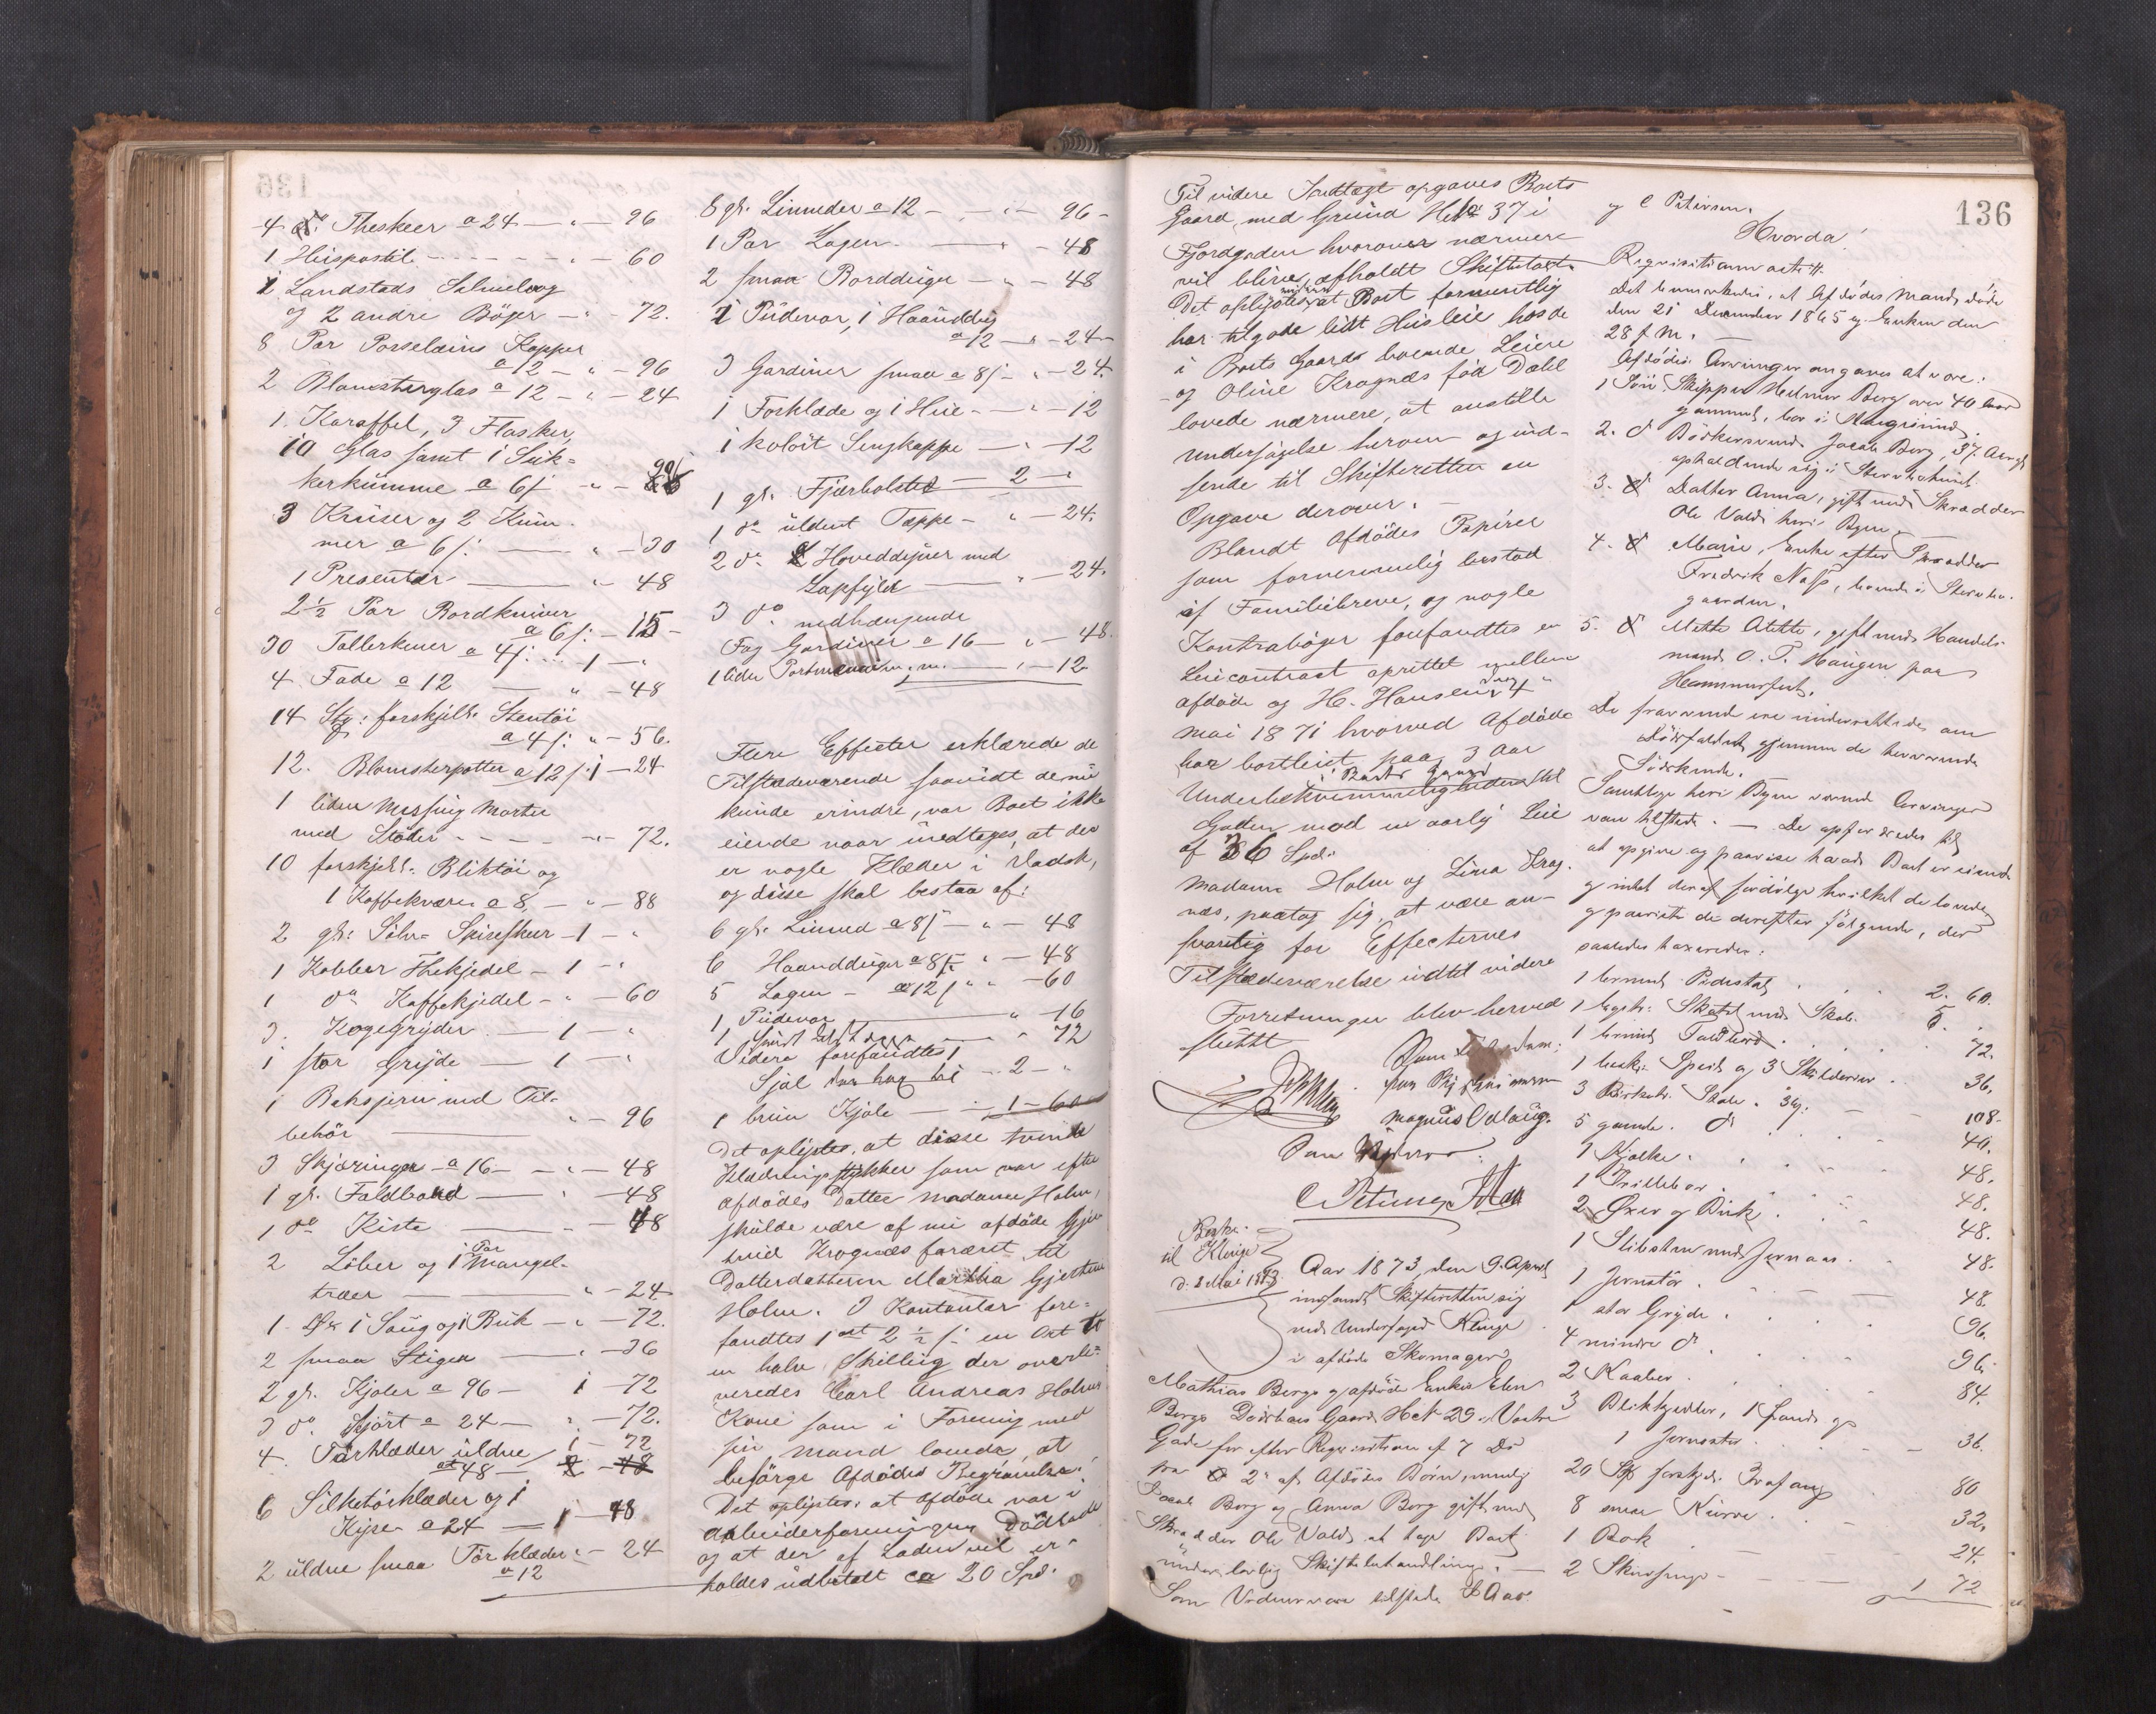 4 do Theskeer a 24 — " — 96
1 Huspostil - - - - " — 60
1 Landstads Salmebog
og 2 andre Bøger — " - 72.
8 Par Porselæins Kopper
a 12 — " — 96
2 Blomsterglas a 12 — " — 24
1 Karaffel, 3 Flasker,
10 Glas samt 1 Suk-
kerkumme a 6 s
3 Kruser og 2 Kum-
mer a 6 s. — " — 30
1 Presentær — " - 48
2½ Par Bordkniver
a 6 s. — 15 -
30 Tallerkener a 4 s. 1 — "
4 Fade a 12 — " — 48
14 Stg: forskjell. Stentøi
a 4 s. " — 56.
12. Blomsterpotter a 12 s. 1 — 24
1 liden Messing Morter
med Støder - - - - " - 72.
10 forskjell. Bliktøi og
1 Kaffekværn a 8. — " — 88
2 gl. Sølv- Spiseskeer — 1 — "
1 Kobber Thekjedel — 1 — "
1 do Kaffekjedel — " — 60
3. Kogegryder — 1 — "
1 stor Gryde — 1 — "
1 Bakejern med Til-
behør — " — 96
3 Skjæringer a 16 — " — 48
1 gl. Foldbord — " — 48
1 do Kiste — " — 48
2 Løber og 1 Par Mangel-
træer — " — 24
1 Øx 1 Saug og 1 Bük — " — 72.
2 smaa Stiger — " — 36
2 gl. Kjoler a 96 — 1 — 72
3 do Skjørt a 24 — " — 72.
4 Tørklæder uldne 1 — 72
a 48 — 2 — 48
6 Silketørklæder og 1
Kyse a 24 — 1 — 48
2 uldne smaa Tørklæder " — 24
a 12
8 gl. Linneder a 12 — " — 96 -
1 Par Lagen — " — 48
2 smaa Bordduge — " — 48
1 Pudevar, 1 Haanddug
a 12 — " — 24
3 Gardiner smaa a 8 s — " — 24.
1 Forklæde og 1 Hue — " — 12
1 kolørt Sengkappe — " — 12
1 gl. Fjærbolster — 2 — "
1 do uldent Teppe — " — 24.
2 do Hoveddyner med
Lapfyld — " — 24.
3 do nedhængende
Fag Gardiner a 16 — " — 48.
1 liden Portmonnai m. m. — " — 12
Flere Effecter erklærede de
Tilstedeværende saavidt de nu
kunde erindre, var Boet ikke
eiende naar undtages, at der
er nogle Klæder i Vadsk,
og disse skal bestaa af:
6 gl. Linned a 8 s — " — 48
6 Haandduger a 8 s " — 48
5 Lagen — a 12 s " — 60
1 Pudevar — " — 16
1 — " 72
Videre forefandtes 1
Sjal — 2 — "
1 brun Kjole — 1 — 60
Det oplystes, at disse tvende
Klædningsstykker som var efter
afdødes Datter Madame Holm,
skulde være af nu afdøde Gjer
trud Krognæs foræret til
Datterdatteren Martha Gjertine
Holm. I Kontanter fore-
fandtes 1 ort 2½ s. en Ort to
en halv Skilling der overle-
veredes Carl Andreas Holms
Kone som i Forening med
sin Mand lovede at
besørge Afdødes Begravelse.
Det oplystes at afdøde var i
Arbeiderforeningens Dødlade
og at der af Laden vil er-
holdes udbetalt ca 20 Spd.
136
Til videre Indtægt opgaves Boets
Gaard, med Grund No 37 i
Fjordgaden hvorover nærmere
vil blive afholdt Skiftetaxt.
Det oplystes videre at Boet formentlig
har tilgode lidt Husleie hos de
i Boets Gaard boende Leiere
og Oline Krognæs født Dahl
lovede nærmere, at anstille
Undersøgelse herom og ind-
sende til Skifteretten en
Opgave derover. —
Blandt Afdødes Papirer
som fornemmelig bestod
af Familiebreve, og nogle
Kontrabøger forefandtes en
Leiecontract oprettet mellem
afdøde og H. Hansen den 4
Mai 1871 hvorved Afdøde
har bortleiet paa 3 Aar
i Boets Gaard
Underbekvemmeligheden til
Gaden mod en aarlig Leie
af 36 Spd.
Madame Holm og Lina Krog-
næs, paatog sig, at være an-
svarlig for Effecternes
Tilstedeværelse indtil videre
Forretningen blev herved
sluttet
Som
Magnus Oxlaug.
Som Vidner:
C Petersen
Berhi.
til Klinge
d. 2 Mai 1873.
Aar 1873, den 9. April
indfandt Skifteretten sig
ved Underfoged Klinge
i afdøde Skomager
Mathias Bergs og afdøde Enkes Elen
Bergs Dødsboes Gaard No 29 i Vestre
Gade for efter Requisition af 7 Ds
fra 2 af Afdødes Børn, nemlig
Jacob Berg og Anna Berg gift med
Skrædder Ole Vold, at tage Boet
under lovlig Skiftebehandling. —
Som Vidner vare tilstede
og C Petersen.
Hvorda!
Requisitionen acto 4.
Det bemærkedes, at Afdødes Mand døde
den 21 December 1865 og Enken den
28 f. M. —
Afdødes Arvinger angaves at være:
1 Søn, Skipper Hedmer Berg over 40 Aar
gammel, bor i
2. do Bødkersvend Jacob Berg, 37 Aar gl
opholdende sig i
3. Datter Anna, gift med Skrædder
Ole Vold heri Byen
4. Marie, Enke efter Skrædder
Fredrik Næss, boende i
gaarden.
5. Mette Atette, gift med Handels-
mand O. T. Haugen paa
Hammerfest.
De fraværende ere underrettede om
Dødsfaldet gjennem de herværende
Sødskende.
Samtlige heri Byen værende Arvinger
vare tilstede. — De opfordredes til
at opgive og paavise hvad Boet er eiende
og intet deraf fordølge hvilket de lovede
og paaviste de derefter følgende, der
saaledes taxeredes:
1 brunmalt Pedestal 2. 60.
1 Skatol med Skab 5. "
1 brunmalt Foldbord 72.
1 Speil og 3 Skilderier 36.
3 Birketr. Stole 36 s. 108-
5 gamle do 40.
1 Kjælke 48.
1 Trillebør 48.
2 Øxer og Buk 48.
1 Slibesten med Jernaas 48.
1 Jernstør 48.
1 stor Gryde 96.
4 mindre do 96.
2 Kaaber 84.
3 Blikkjedler, 1 Pande og
1 Jernmorter 36.
20 Stk forskjel. Trafang 80
8 smaa Kurve 32.
1 Rok 24.
2 1 72